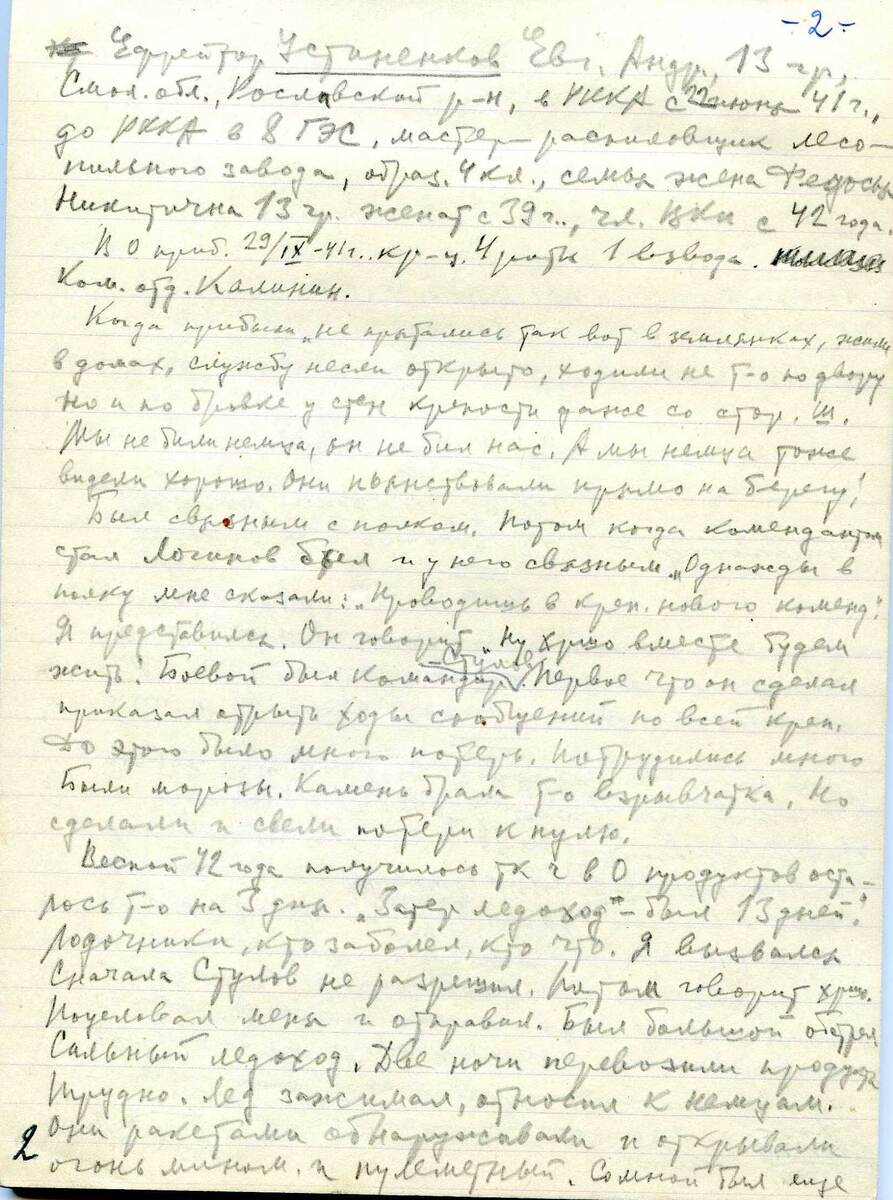 -2-
Ефрейтор Устиненков Евг. Андр., 13 гр,
Смол. обл., Рославской р-н, в РККА с 22 июня 41 г.,
до РККА в 8 ГЭС, мастер-распиловщик лесо-
пильного завода, образ. 4 кл., семья жена Федосья
Никитична 13 гр. женат с 39 г., чл. ВКП с 42 года.
В О приб. 29/IX-41г. кр-ц. 4 роты 1 взвода.
Ком. отд. Калинин.
Когда прибыли „не прятались так вот в землянках, жили
в домах, службу несли открыто, ходили не т-о по двору
но и по бровке у стен крепости даже со стор. Ш.
Мы не били немца, он не бил нас. А мы немца тоже
видели хорошо. Они пьянствовали прямо на берегу!
Был связным с полком. Потом когда комендантом
стал Логинов был и у него связным. „Однажды в
полку мне сказали: „Проводишь в креп. нового коменд".
Я представился. Он говорит „Ну хршо вместе будем
жить! Боевой был командир. Первое что он сделал
Стулов
приказал отрыть ходы сообщений по всей креп.
До этого было много потерь. Потрудились много
Были морозы. Камень брала т-о взрывчатка. Но
сделали и свели потери к нулю.
Весной 42 года получилось тк ч в О продуктов оста-
лось т-о на 3 дня. „Затер ледоход" - был 13 дней!
Лодочники, кто заболел, кто что. Я вызвался
Сначала Стулов не разрешил. Потом говорит хршо.
Поцеловал меня и отправил. Был большой обстрел
Сильный ледоход. Две ночи перевозили продукты
Трудно. Лед зажимал, относил к немцам.
Они ракетами обнаруживали и открывали
огонь мином. и пулеметный. Со мной был еще
2